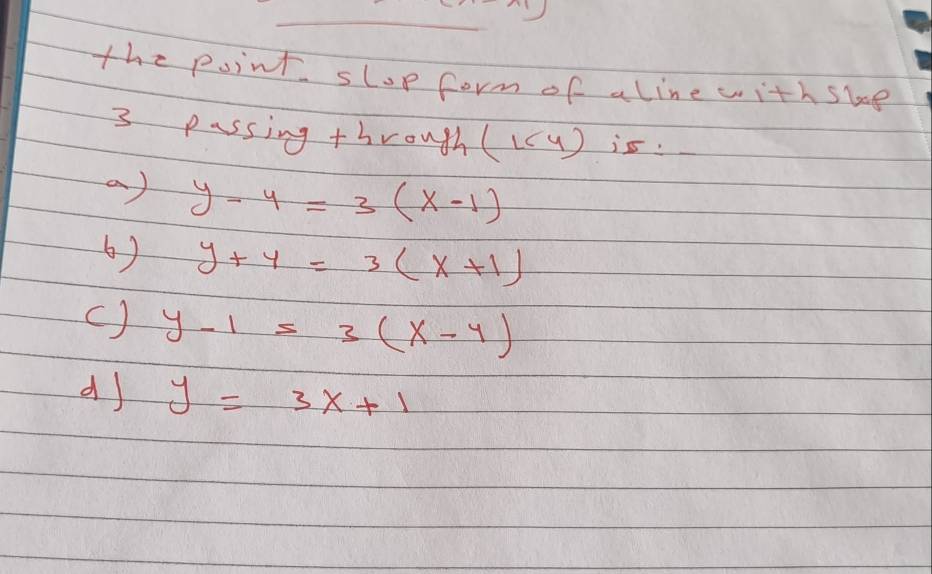 the point-slop form of a line with slop
3 passing through (1<4) is:-
a) y-4 = 3(x-1)
b) y+4 = 3(x+1)
c) y-1 = 3(x-4)
d) y = 3x+1